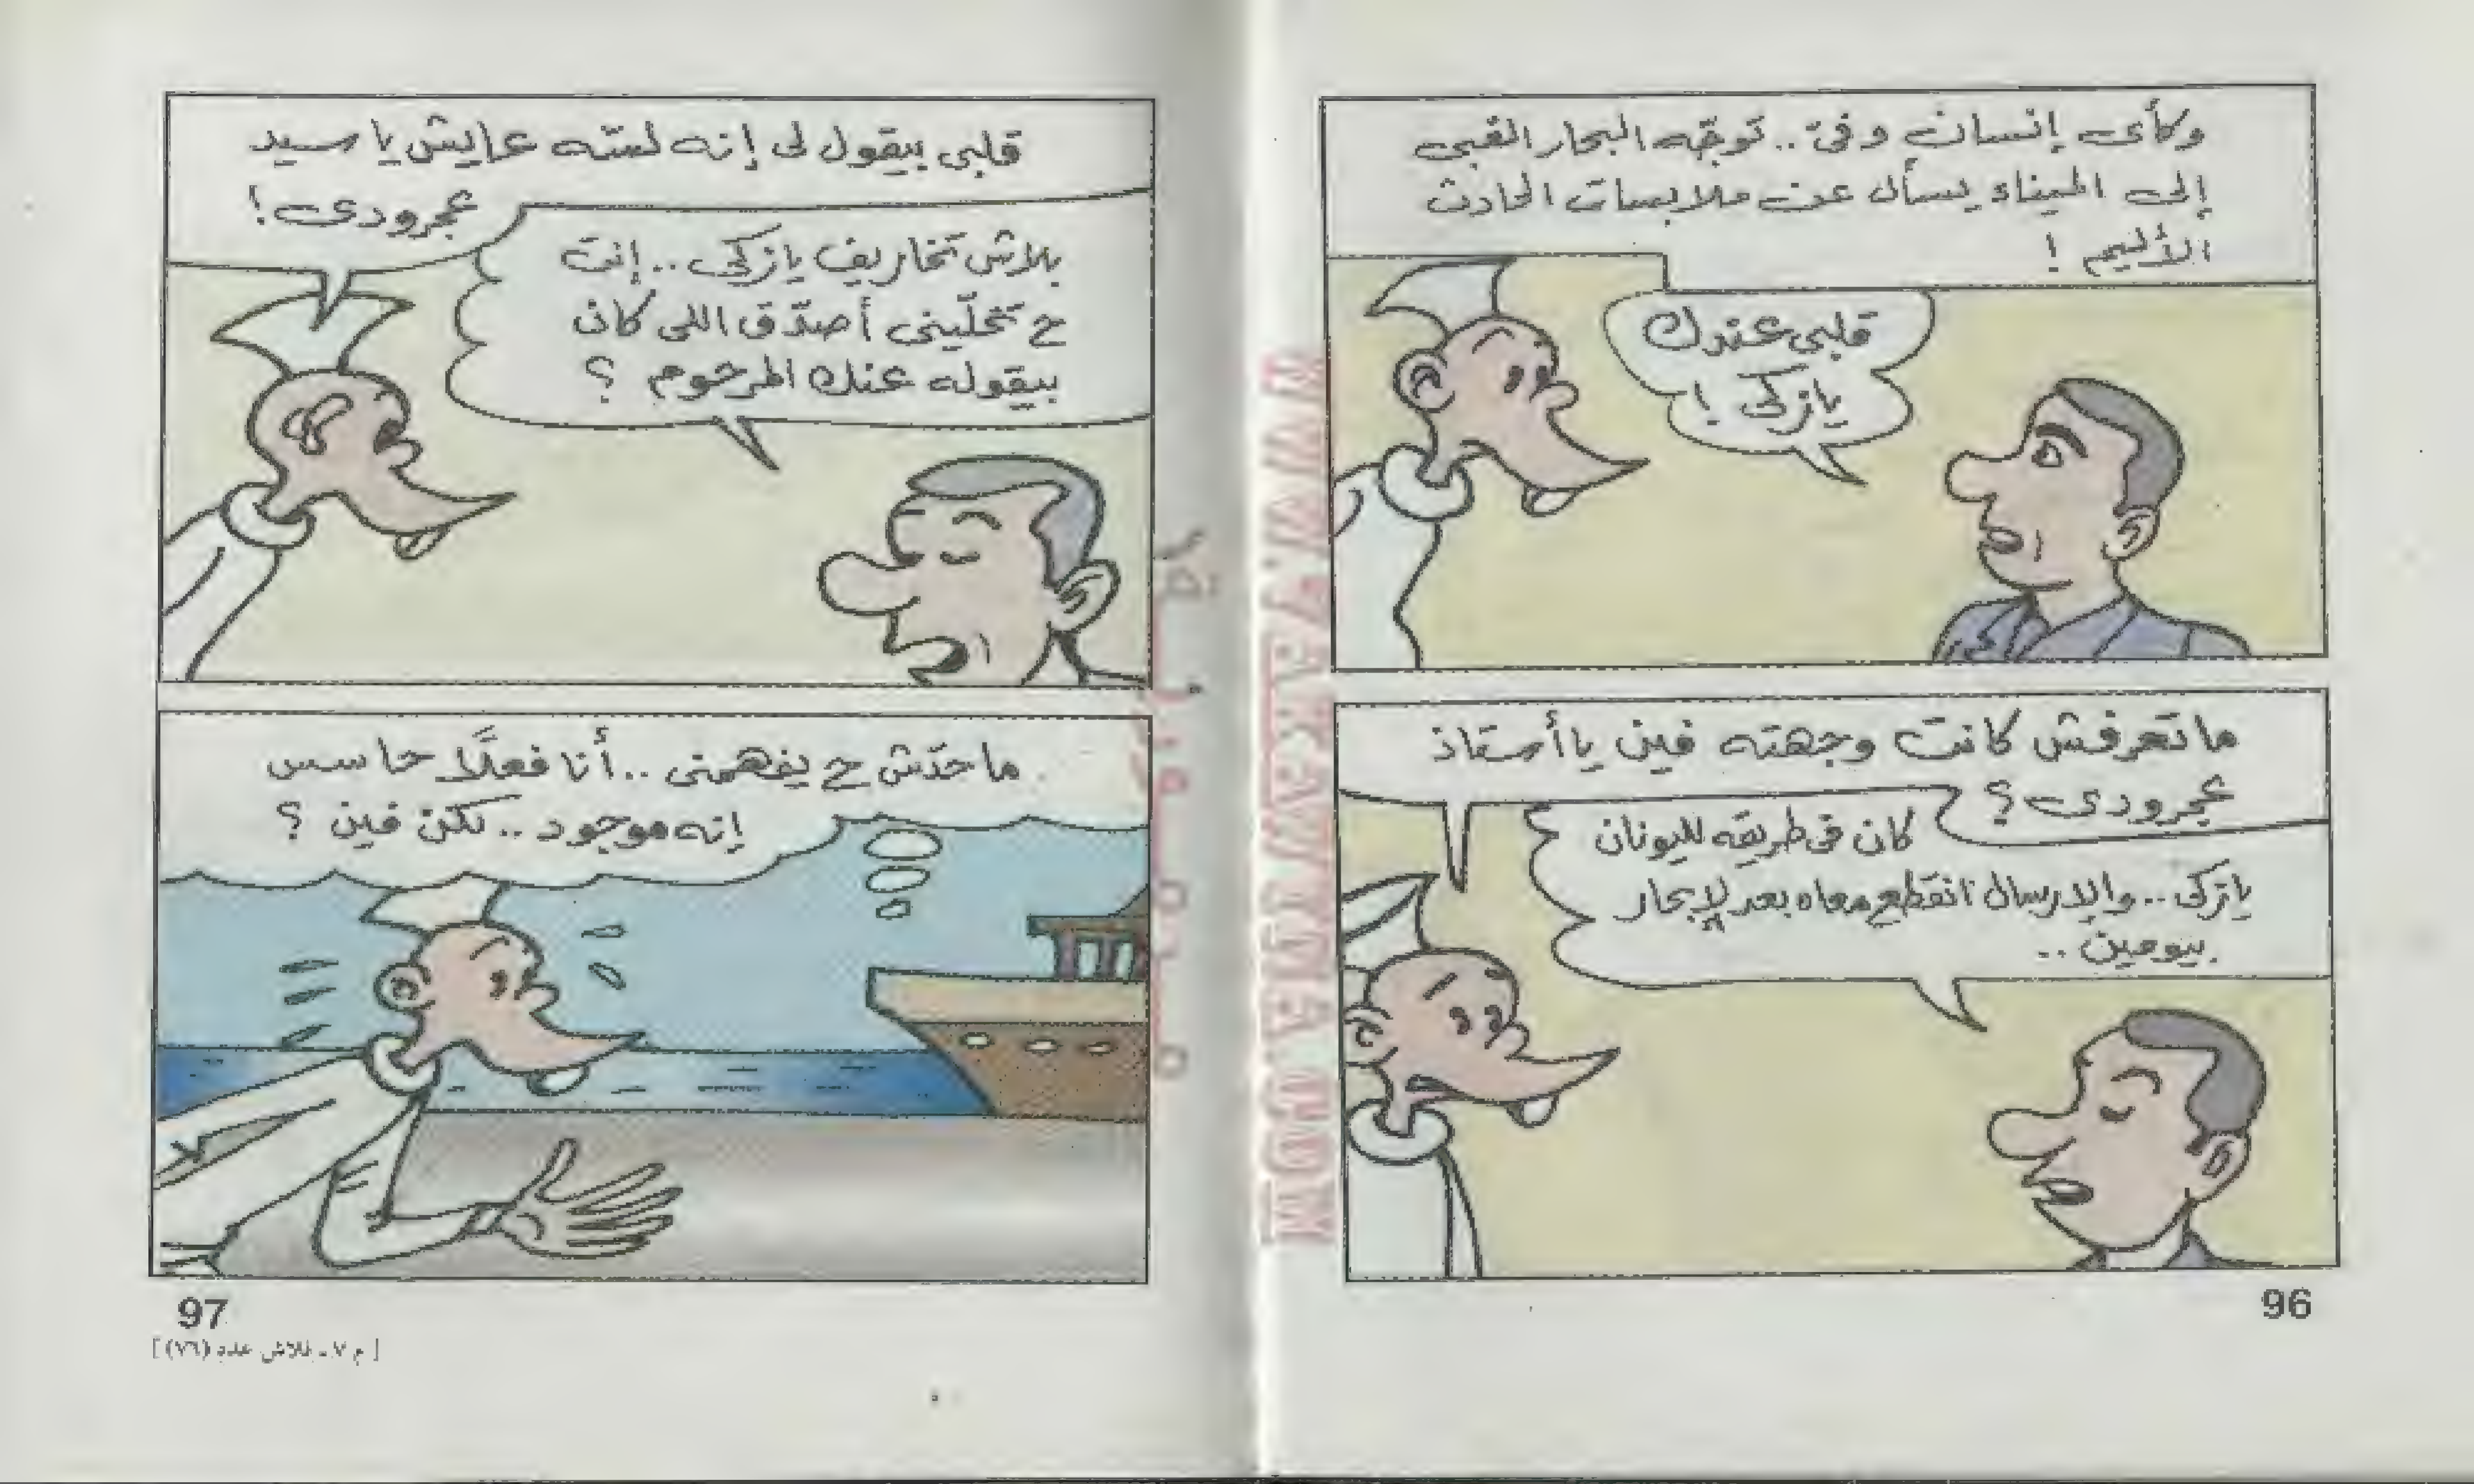 وكأى إنسان وفىّ.. توجّه البحار الغبى
إلى الميناء يسأل عن ملابسات الحادث
الأليم !
قلبى عندك
يا زكى !
ما تعرفش كانت وجهته فين يا أستاذ
عجرودى ؟
كان فى طريقه لليونان
يا زكى.. والإرسال انقطع معاه بعد الإبحار
بيومين ..
96
قلبى بيقول لى إنه لسّه عايش يا سيد
عجرودى !
بلاش تخاريف يا زكى.. إنت
ح تخلّينى أصدّق اللى كان
بيقوله عنك المرحوم ؟
ما حدّش ح يفهمنى .. أنا فعلًا حاسس
إنه موجود .. لكن فين ؟
97
[ م ٧ - فلاش عدد (٧٦) ]